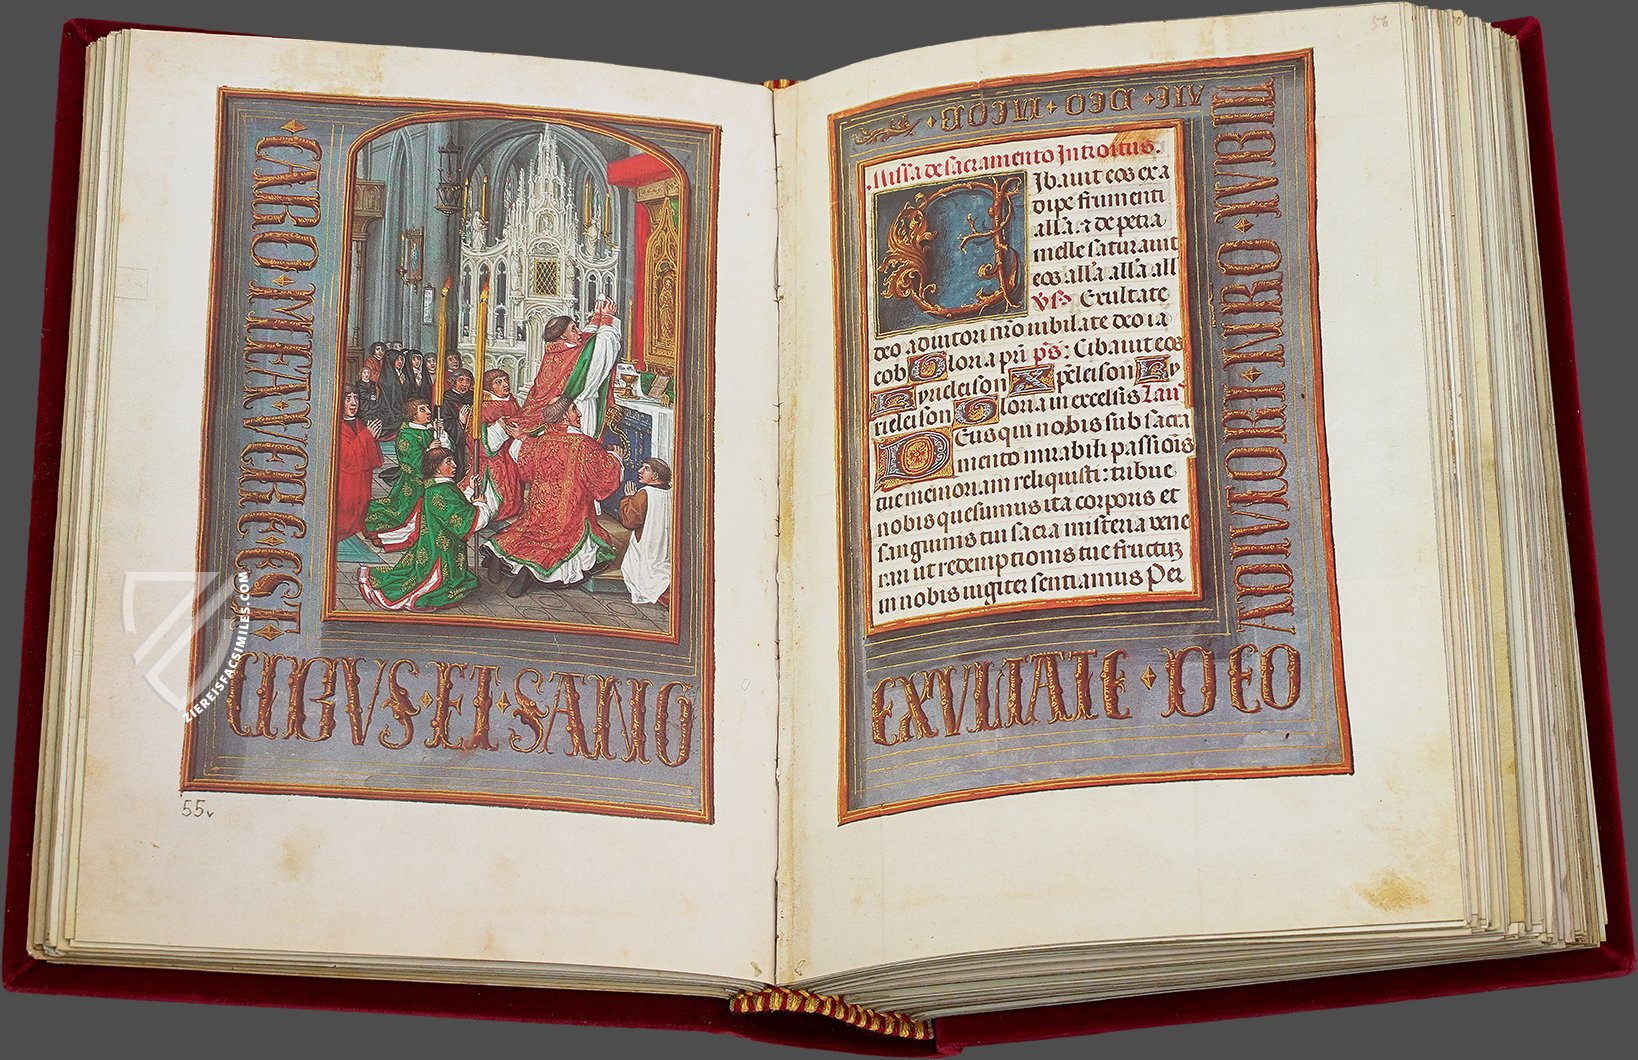 CARO·MEA·VERE·EST·
CIBVS·ET·SANG
55v
ZIEREISFACSIMILES.COM
56
ATE·DEO·IACOB·
Missa de sacramento Introitus.
Cibauit eos ex a
dipe frumenti
all'a. ⁊ de petra
melle saturauit
eos all'a all'a all'
vs Exultate
deo adiutori nro iubilate deo ia
cob Gloria pri ps: Cibauit eos
Kyrieleison Xpeleison Ky
rieleison Gloria in excelsis
Deus qui nobis sub sacra
mento mirabili passionis
tue memoriam reliquisti: tribue
nobis quesumus ita corporis et
sanguinis tui sacra misteria vene
rari ut redemptionis tue fructuz
in nobis iugiter sentiamus Per
EXVLTATE·DEO
ADIVTORI·NRO·IVBIL